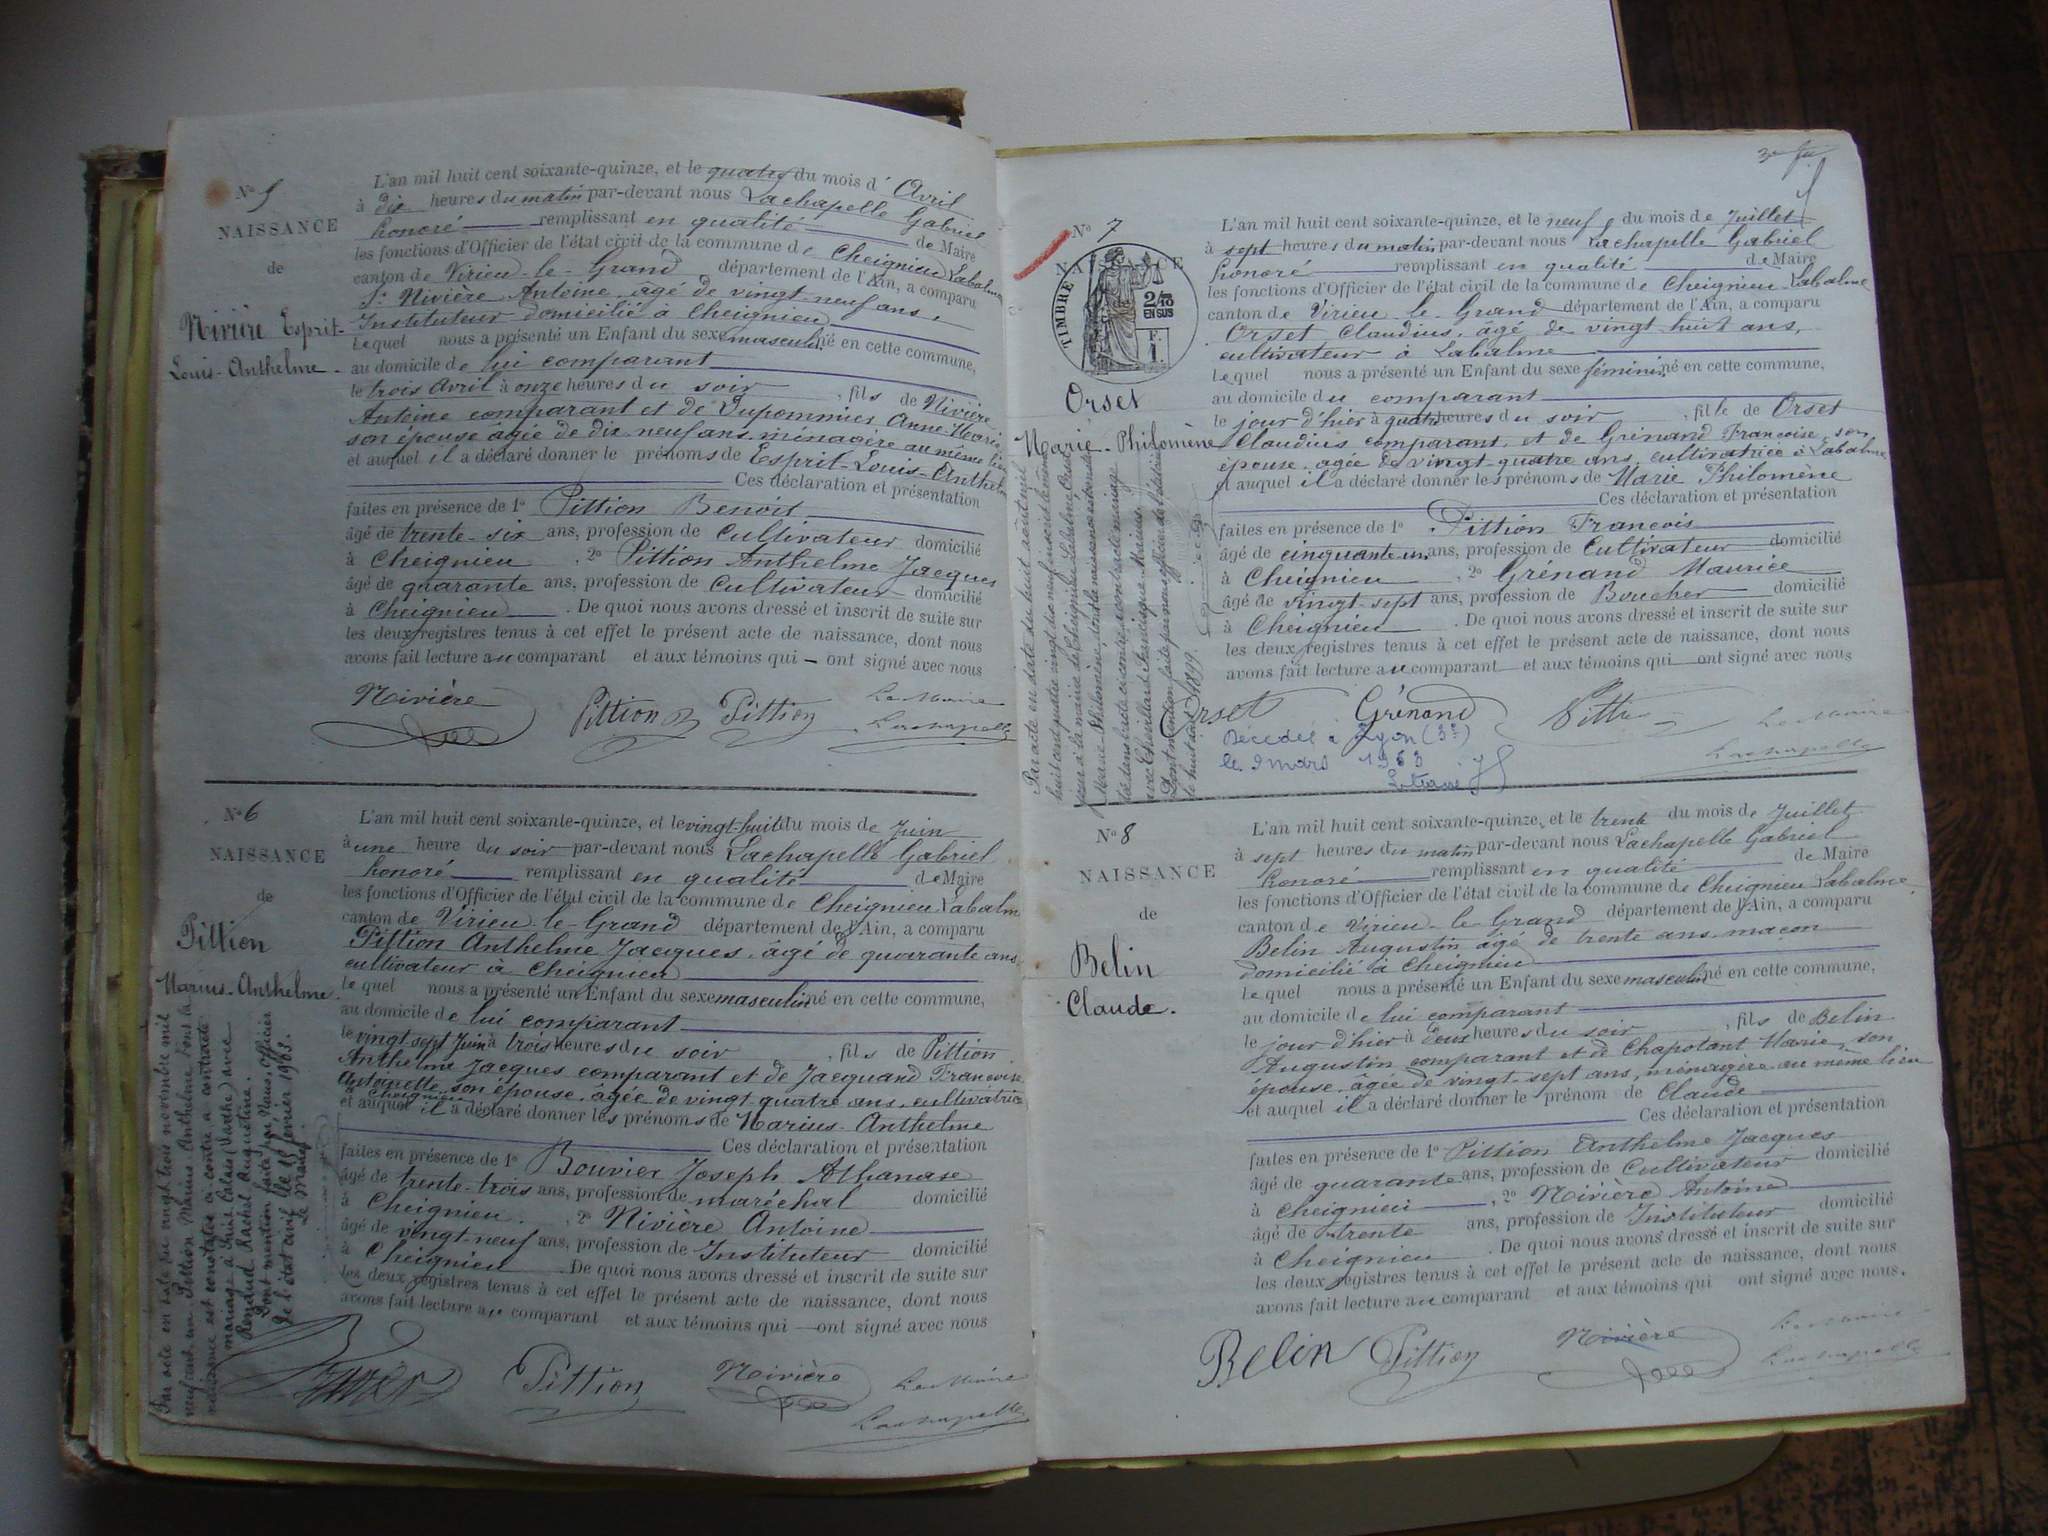 N° 5
NAISSANCE
de
Nivière Esprit-
Louis-Anthelme.
L'an mil huit cent soixante-quinze, et le quatre du mois d' Avril
à dix heures du matin par-devant nous Lachapelle Gabriel
honoré remplissant en qualité de Maire
les fonctions d'Officier de l'état civil de la commune de Cheignieu Labalme
canton de Virieu-le-Grand département de l'Ain, a comparu
Sr Nivière Antoine, âgé de vingt-neuf ans,
Instituteur domicilié à Cheignieu
Lequel nous a présenté un Enfant du sexe masculin né en cette commune,
au domicile de lui comparant
le trois Avril à onze heures du soir, fils de Nivière
Antoine comparant et de Dupommier Anne-Marie
son épouse âgée de dix-neuf ans, ménagère au même lieu
et auquel il a déclaré donner le prénoms de Esprit-Louis-Anthelme
Ces déclaration et présentation
faites en présence de 1° Pittion Benoit
âgé de trente-six ans, profession de Cultivateur domicilié
à Cheignieu, 2° Pittion Anthelme Jacques
âgé de quarante ans, profession de Cultivateur domicilié
à Cheignieu. De quoi nous avons dressé et inscrit de suite sur
les deux registres tenus à cet effet le présent acte de naissance, dont nous
avons fait lecture au comparant et aux témoins qui – ont signé avec nous
Nivière Pittion Pittion Le Maire
Lachapelle
N° 6
NAISSANCE
de
Pittion
Marius-Anthelme.
L'an mil huit cent soixante-quinze, et le vingt-huit du mois de Juin
à une heure du soir par-devant nous Lachapelle Gabriel
honoré remplissant en qualité de Maire
les fonctions d'Officier de l'état civil de la commune de Cheignieu Labalme
canton de Virieu-le-Grand département de l'Ain, a comparu
Pittion Anthelme Jacques, âgé de quarante ans
cultivateur à Cheignieu
Lequel nous a présenté un Enfant du sexe masculin né en cette commune,
au domicile de lui comparant
le vingt sept Juin à trois heures du soir, fils de Pittion
Anthelme Jacques comparant et de Jacquand Françoise
Antoinette son épouse, âgée de vingt-quatre ans, cultivatrice
à Cheignieu
et auquel il a déclaré donner les prénoms de Marius-Anthelme
Ces déclaration et présentation
faites en présence de 1° Bouvier Joseph Athanase
âgé de trente-trois ans, profession de maréchal domicilié
à Cheignieu, 2° Nivière Antoine
âgé de vingt-neuf ans, profession de Instituteur domicilié
à Cheignieu. De quoi nous avons dressé et inscrit de suite sur
les deux registres tenus à cet effet le présent acte de naissance, dont nous
avons fait lecture au comparant et aux témoins qui — ont signé avec nous
Par acte en date du vingt trois novembre mil
neuf cent un Pittion Marius Anthelme dont la
naissance est constatée ci-contre a contracté
mariage à avec
Renaud Rachel Augustine.
Dont mention faite par Nous, officier
de l'état civil, le 15 1903.
Le Maire.
Pittion Nivière Le Maire
Lachapelle
N° 7
NAISSANCE
TIMBRE
2/10
EN SUS
F.
1.
Orset
Marie-Philomène
L'an mil huit cent soixante-quinze, et le neuf du mois de Juillet
à sept heures du matin par-devant nous Lachapelle Gabriel
honoré remplissant en qualité de Maire
les fonctions d'Officier de l'état civil de la commune de Cheignieu-Labalme
canton de Virieu-le-Grand département de l'Ain, a comparu
Orset Claudius, âgé de vingt huit ans,
cultivateur à Labalme
Lequel nous a présenté un Enfant du sexe féminin né en cette commune,
au domicile du comparant
le jour d'hier à quatre heures du soir, fille de Orset
Claudius comparant, et de Grénand Françoise, son
épouse, agée de vingt-quatre ans, cultivatrice à Labalme
et auquel il a déclaré donner les prénoms de Marie Philomène
Ces déclaration et présentation
faites en présence de 1° Pittion François
âgé de cinquante un ans, profession de Cultivateur domicilié
à Cheignieu, 2° Grénand Maurice
âgé de vingt-sept ans, profession de Boucher domicilié
à Cheignieu. De quoi nous avons dressé et inscrit de suite sur
les deux registres tenus à cet effet le présent acte de naissance, dont nous
avons fait lecture au comparant et aux témoins qui — ont signé avec nous
Par acte en date du huit août mil
huit cent quatre vingt dix neuf
jour à la mairie de Cheignieu-Labalme, Orset
Marie Philomène, dont la naissance est
ci-contre, a contracté mariage
avec Marius.
Dont mention faite par nous officier de l'état civil
le huit août 1899.
Orset Grénand Pittion Le Maire
Lachapelle
Décédée à Lyon (3e)
le 9 mars 1963
N° 8
NAISSANCE
de
Belin
Claude.
L'an mil huit cent soixante-quinze, et le trente du mois de Juillet
à sept heures du matin par-devant nous Lachapelle Gabriel
honoré remplissant en qualité de Maire
les fonctions d'Officier de l'état civil de la commune de Cheignieu Labalme
canton de Virieu-le-Grand département de l'Ain, a comparu
Belin Augustin âgé de trente ans, maçon
domicilié à Cheignieu
Lequel nous a présenté un Enfant du sexe masculin né en cette commune,
au domicile de lui comparant
le jour d'hier à deux heures du soir, fils de Belin
Augustin comparant et de Chapotant Marie, son
épouse, âgée de vingt-sept ans, ménagère au même lieu
et auquel il a déclaré donner le prénom de Claude
Ces déclaration et présentation
faites en présence de 1° Pittion Anthelme Jacques
âgé de quarante ans, profession de Cultivateur domicilié
à Cheignieu, 2° Nivière Antoine
âgé de trente ans, profession de Instituteur domicilié
à Cheignieu. De quoi nous avons dressé et inscrit de suite sur
les deux registres tenus à cet effet le présent acte de naissance, dont nous
avons fait lecture au comparant et aux témoins qui ont signé avec nous.
Belin Pittion Nivière Le Maire
Lachapelle